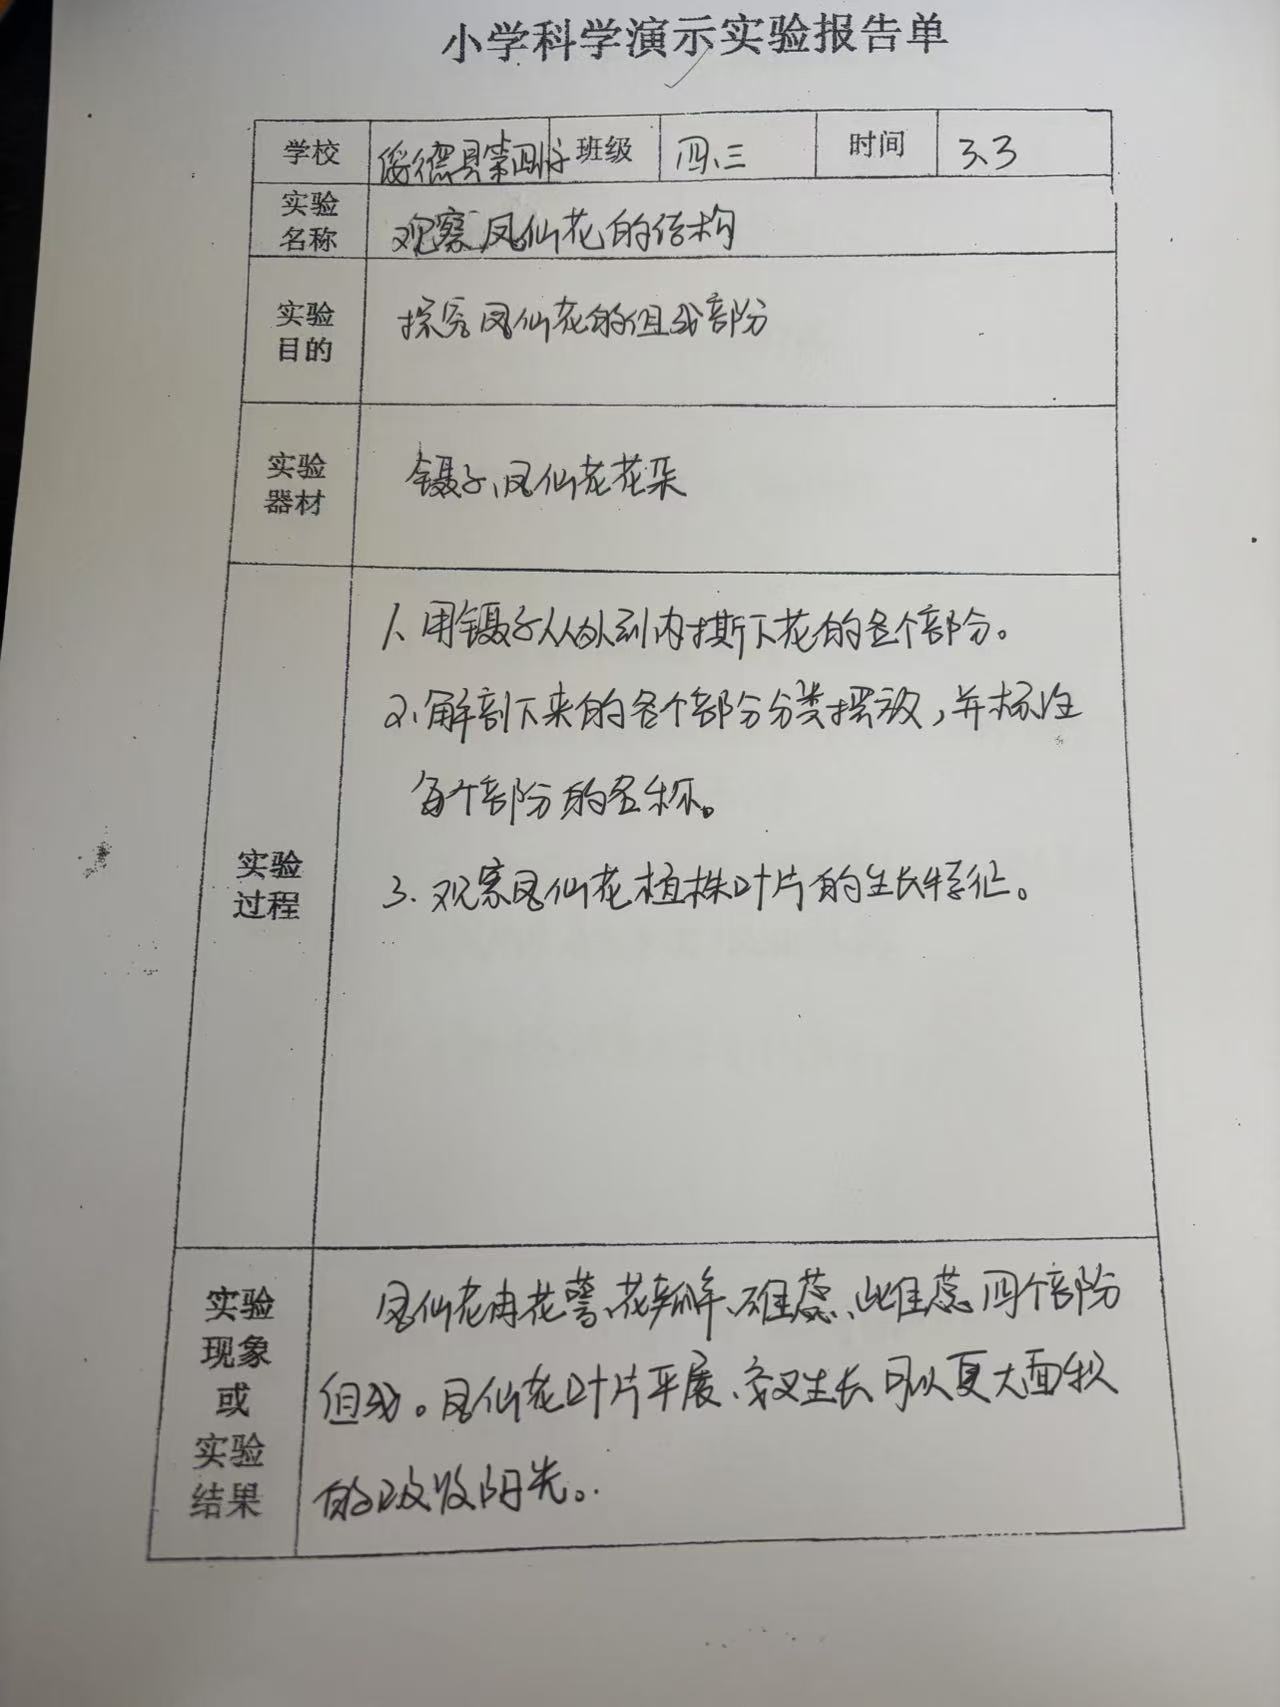 小学科学演示实验报告单
学校 绥德县第四小 班级 四.三 时间 3.3
实验名称 观察凤仙花的结构
实验目的 探究凤仙花的组成部分
实验器材 镊子、凤仙花花朵
实验过程
1、用镊子从外到内撕下花的各个部分。
2、解剖下来的各个部分分类摆放,并标注
每个部份的名称。
3.观察凤仙花植株叶片的生长特征。
实验现象或实验结果
凤仙花由花萼、花瓣、雄蕊、雌蕊四个部份
组成。凤仙花叶片平展、交叉生长可以更大面积
的吸收阳光。